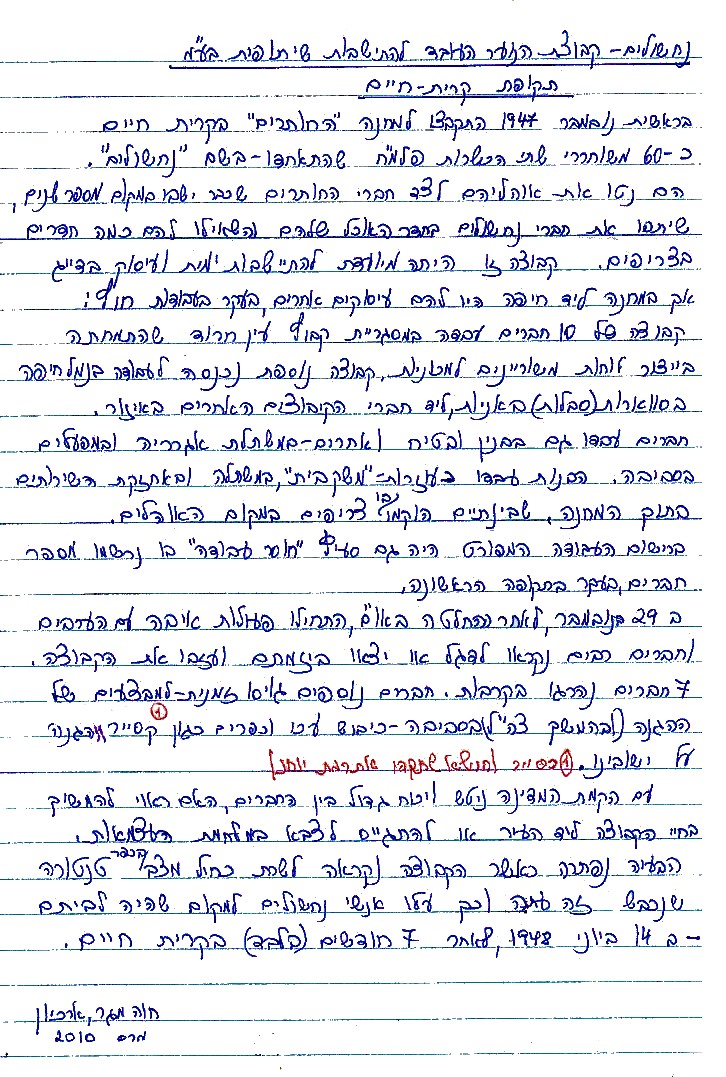 נחשולים - קבוצת הנוער העובד להתישבות שיתופית בע"מ
תקופת קרית-חיים
בראשית נובמבר 1947 התקבצו למחנה "החותרים" בקרית חיים
כ-60 משוחררי שתי הכשרות פלמ"ח שהתאחדו - בשם "נחשולים".
הם נטו את אוהליהם לצד חברי החותרים שכבר ישבו במקום מספר שנים,
שיתפו את חברי נחשולים בחדר האוכל שלהם והשאילו להם כמה חדרים
בצריפים. קבוצה זו היתה מיועדת להתיישבות ימית ועיסוק בדייג
אך במחנה ליד חיפה היו להם עיסוקים אחרים, בעקר בעבודות חוץ:
קבוצה של 10 חברים עבדה במסגריית קבוץ עין חרוד שהתמחתה
בייצור לוחות משוריינים למכוניות, קבוצה נוספת נכנסה לעבודה בנמל חיפה
בסווארות (סבלות) באניות, ליד חברי הקיבוצים האחרים באיזור.
חברים עבדו גם בבנין ובטיח ואחרים - במשתלת אגררייה ובמפעלים
בסביבה. הבנות עבדו כעוזרות - "משק בית", במשתלה ובאחזקת השירותים
בתוך המחנה, שבינתיים הוקמו בו צריפים במקום האוהלים.
ברישום העבודה המפורט היה גם סעיף "חוסר עבודה" בו נרשמו מספר
חברים, בעקר בתקופה הראשונה.
ב 29 בנובמבר, לאחר ההחלטה באו"ם, התחילו פעולות איבה עם הערבים
וחברים רבים נקראו לדגל או יצאו ביוזמתם ועזבו את הקבוצה.
7 חברים נהרגו בקרבות. חברים נוספים גויסו זמנית - למבצעים של
ההגנה (ובהמשך צה"ל) בסביבה - כיבוש עכו וכפרים כגון קסייר ① והגנה
על ישובינו. ① כסייר וחושה שתקפו את רמת יוחנן
עם הקמת המדינה ניטש ויכוח גדול בין החברים, האם ראוי להמשיך
בחיי הקבוצה ליד העיר או להתגייס לצבא במלחמת העצמאות.
הבעיה נפתרה כאשר הקבוצה נקראה לשרת כחיל מצב בכפר טנטורה
שנכבש זה עתה וכך עלו אנשי נחשולים למקום שהיה לביתם
- ב 14 ביוני 1948, לאחר 7 חודשים (בלבד) בקרית חיים.
חוה מגר, ארכיון
מרס 2010